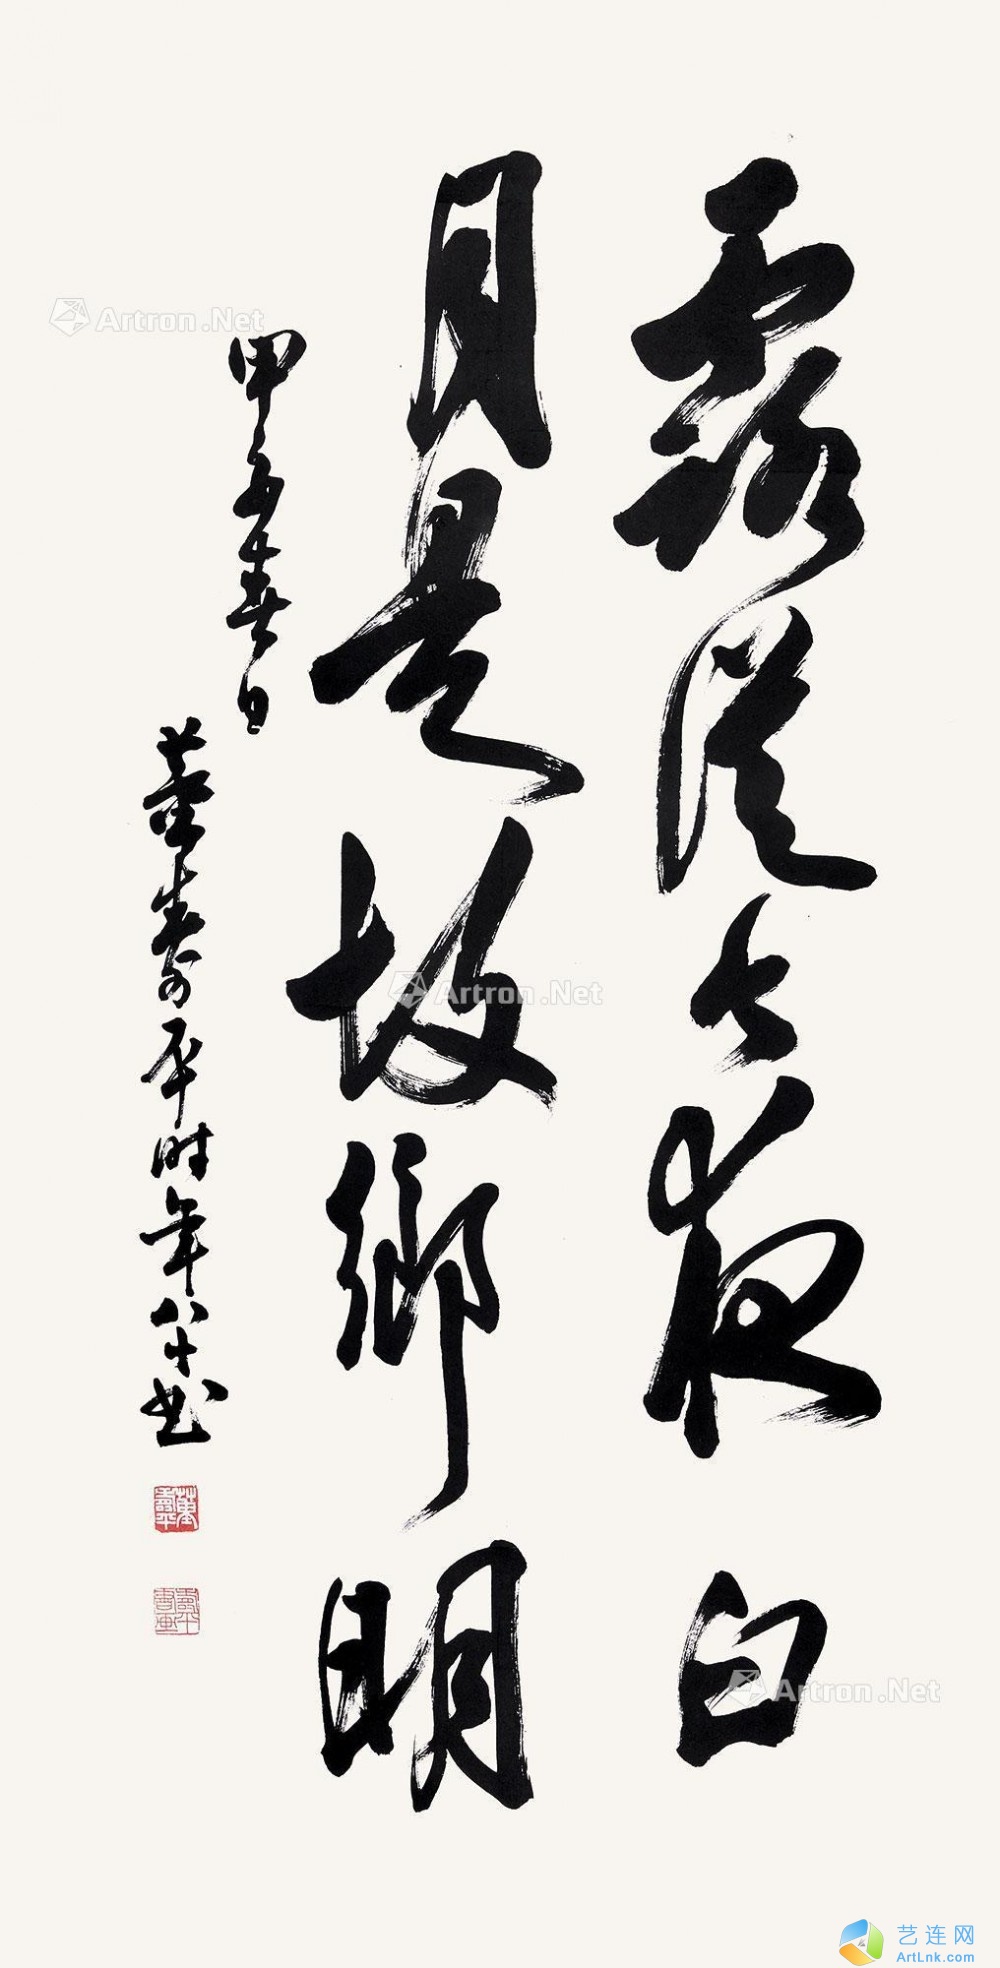 露從今夜白
月是故鄉明
甲子春日
董壽平时年八十书
董壽平
Artron.Net
Artron.Net
Artron.Net
艺连网
ArtLnk.com